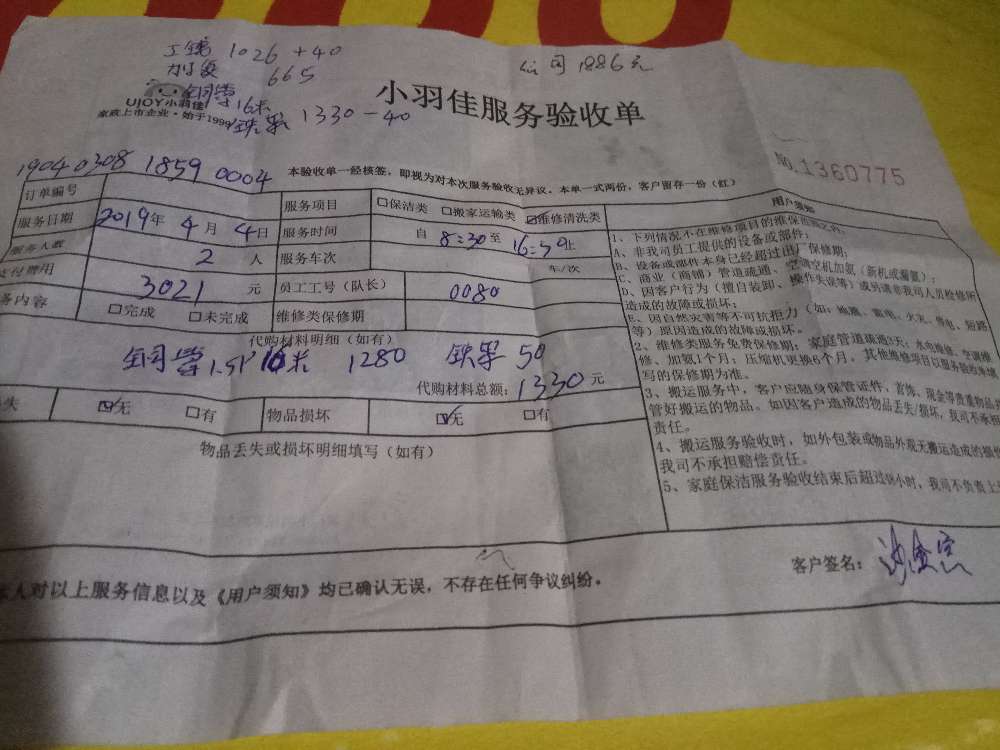 工钱 1026 +40
公司 1886元
加氟 665
铜管16米
铁架 1330-40
UJOY小羽佳
家政上市企业·始于1999
小羽佳服务验收单
19040308 1859 0004
本验收单一经核签，即视为对本次服务验收无异议。本单一式两份，客户留存一份（红）
No.1360775
订单编号
服务项目 □保洁类 □搬家运输类 ☑维修清洗类
服务日期 2019年 4月 4日
服务时间 自 8:30至 16:30止
服务人数 2 人
服务车次 车/次
支付费用 3021 元
员工工号（队长） 0080
务内容 □完成 □未完成
维修类保修期
代购材料明细（如有）
铜管1.5P 16米 1280 铁架 50
代购材料总额：1330元
失 ☑无 □有
物品损坏 ☑无 □有
物品丢失或损坏明细填写（如有）
用户须知
1、下列情况不在维修项目的维保范围之内：
A、非我司员工提供的设备或部件；
B、设备或部件本身已经超过出厂保修期；
C、商业（商铺）管道疏通、空调空机加氟（新机或漏氟）；
D、因客户行为（擅自装卸、操作失误等）或另请非我司人员检修所
造成的故障或损坏；
E、因自然灾害等不可抗拒力（如：地震、雷电、火灾、停电、短路
等）原因造成的故障或损坏。
2、维修类服务免费保修期：家庭管道疏通3天；水电维修、空调维
修、加氟1个月；压缩机更换6个月，其他维修项目以服务验收单填
写的保修期为准。
3、搬运服务中，客户应随身保管证件、首饰、现金等贵重物品
管好搬运的物品。如因客户造成的物品丢失/损坏，我司不承担
责任。
4、搬运服务验收时，如外包装或物品外观无搬运造成的损
我司不承担赔偿责任。
5、家庭保洁服务验收结束后超过48小时，我司不负责上
客户签名：
本人对以上服务信息以及《用户须知》均已确认无误，不存在任何争议纠纷。